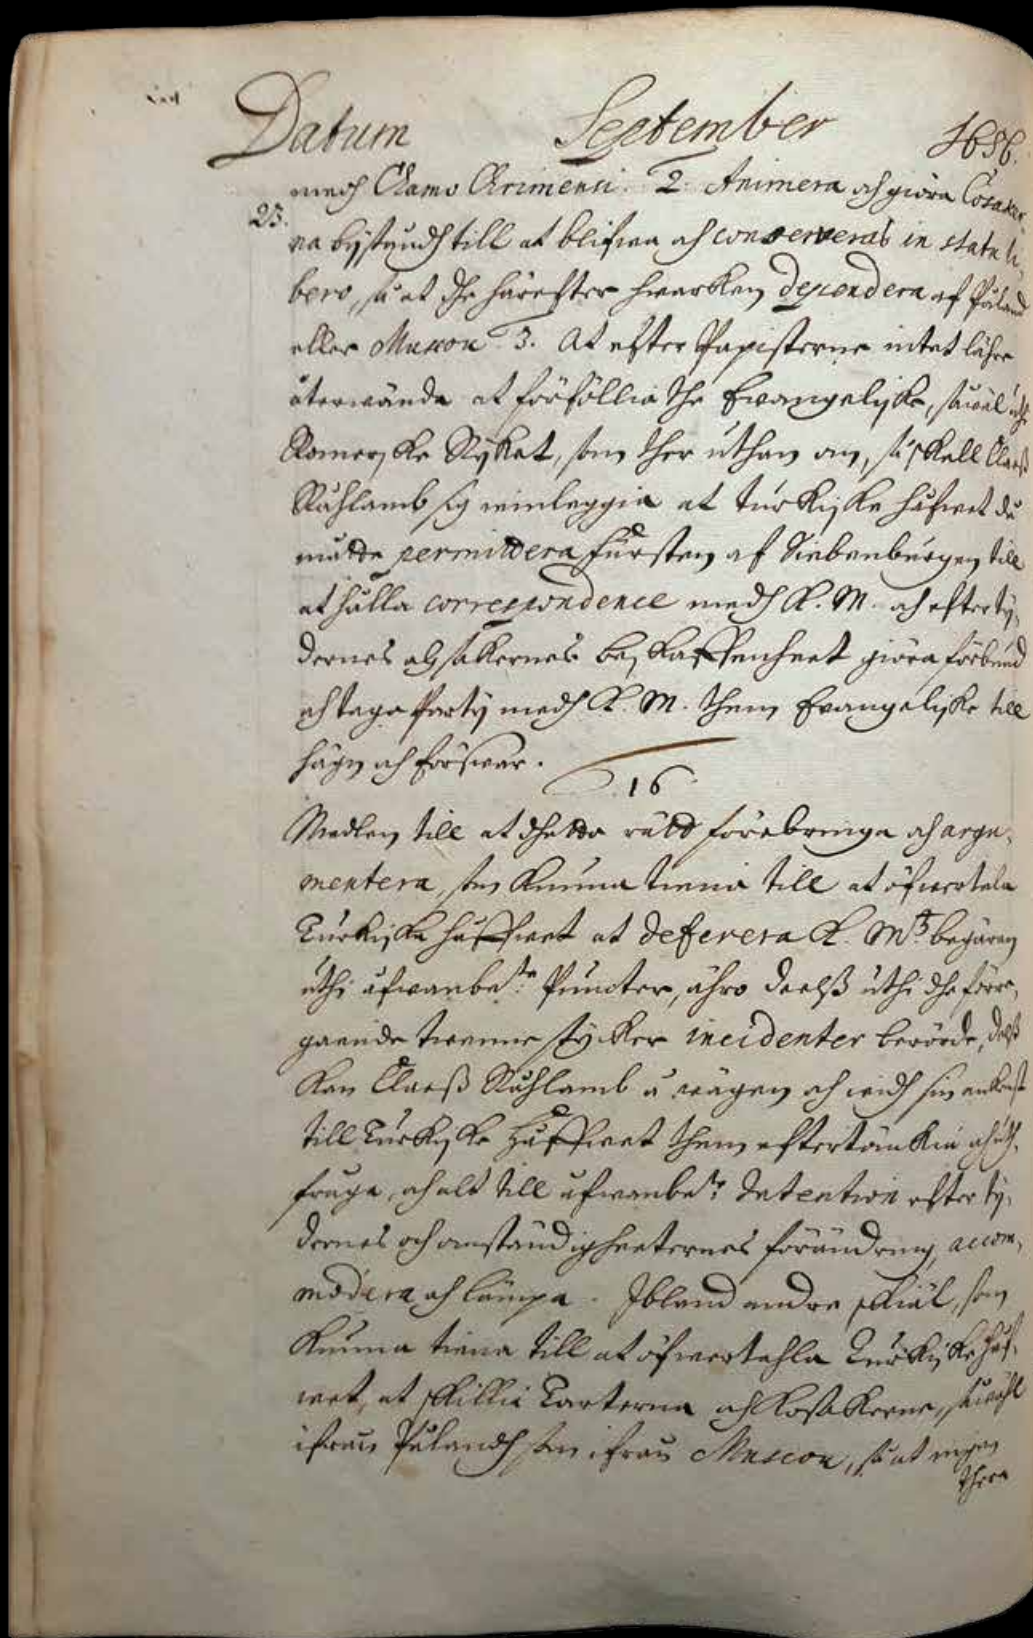 Datum September 1656.
medh Chamo Crimensi. 2. Animera och giöra Cosaker-
23.
na bÿståndh till at blifwa och conserveras in statu li-
bero, så at the härefter hwarken dependera af Påland
eller Muscou 3. At efter Papisterne intet lähre
återwända at förföllia the Ewangelijske, såwäl uthi
Romerske Rÿket, som ther uthan om, så skall Claeß
Råhlamb sig winleggia at turkiske håfwet då
måtte permittera Fursten af Siebenburgen till
at hålla correspondence medh K. M. och efter tÿ-
dernes och sakernes beskaffenheet giöra förbund
och taga Partÿ medh K. M. them Evangeliske till
hägn och förswar.
16
Medlen till at dhetta rätt förebringa och argu-
mentera, som kunna tiena till at öfwertala
Turkiske håffwet at deferera K. Mtz begäran
uthi ofwanbete Puncter, ähro deelß uthi dhe förre-
gaende twenne stÿcker incidenter berörde, deelß
kan Claeß Råhlamb å wägen och widh sin ankomst
till Turkiske Håffwet them eftertänkia och uth-
fråga, och alt till ofwanbete Intention efter tÿ-
dernes och omständigheeternes förändring, accom-
modera och lämpa. Ibland andra skiäl, som
kunna tiena till at öfwertahla Turkiske Håf-
wet, at skillia Tarterna och Kosakerne, såwähl
ifrån Pålandh som ifrån Muscou, så at ingen
thera